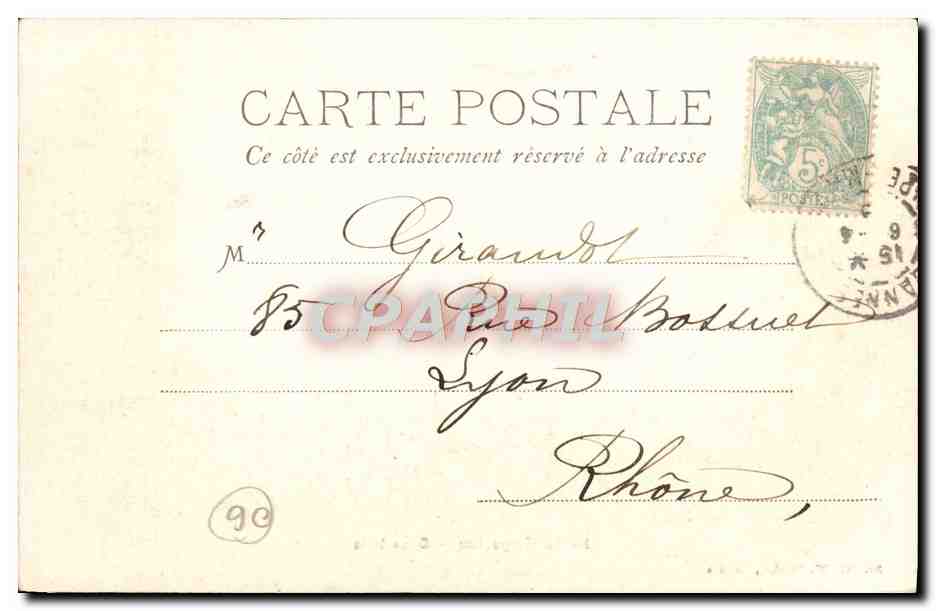 CARTE POSTALE
Ce côté est exclusivement réservé à l'adresse
5c
POSTES
Mr Giraudot
85 Rue Bossuet
CPAPHIL
Lyon
Rhône,
90